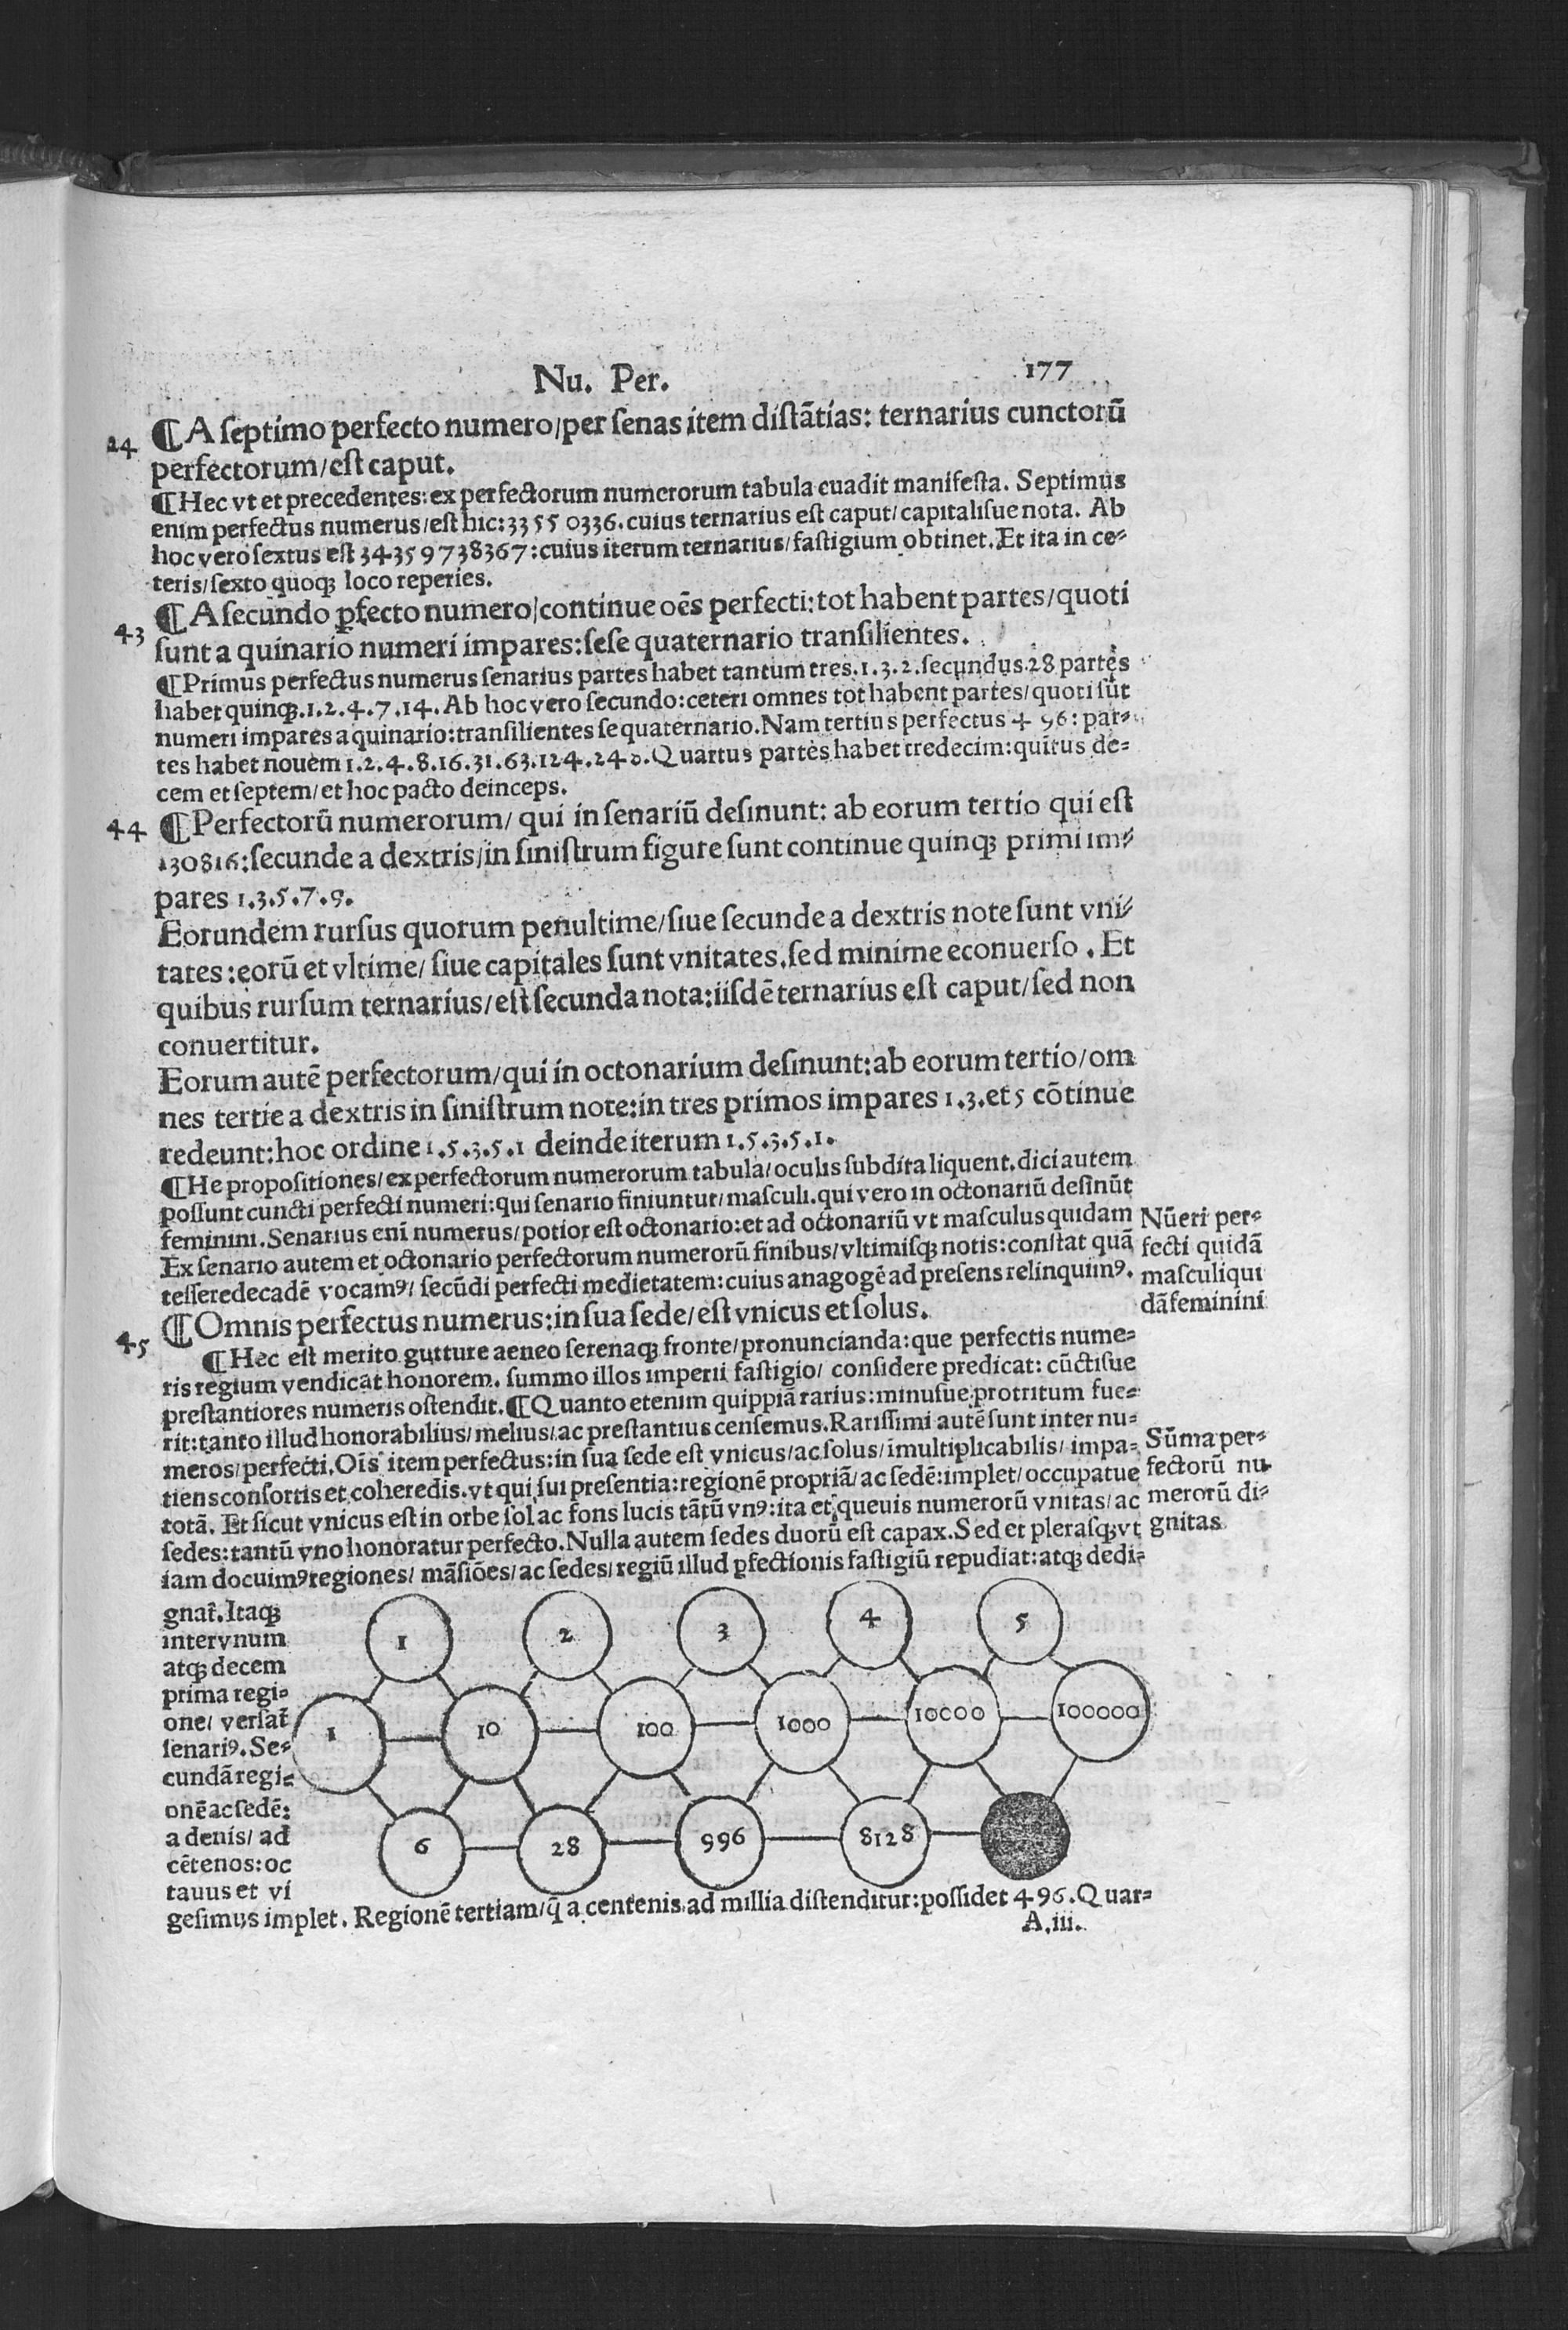 Nu. Per. 177
24 ¶ A ſeptimo perfecto numero/per ſenas item diſtãtias: ternarius cunctorũ
perfectorum/eſt caput.
¶ Hec vt et precedentes: ex perfectorum numerorum tabula euadit manifeſta. Septimus
enim perfectus numerus/eſt hic: 33 55 0336. cuius ternarius eſt caput/ capitaliſue nota. Ab
hoc vero ſextus eſt 34359738367: cuius iterum ternarius/faſtigium obtinet. Et ita in ce⸗
teris/ſexto quoqꝫ loco reperies.
43 ¶ A ſecundo ꝑfecto numero/continue oẽs perfecti: tot habent partes/quoti
ſunt a quinario numeri impares: ſeſe quaternario tranſilientes.
¶ Primus perfectus numerus ſenarius partes habet tantum tres. 1. 3. 2. ſecundus 28 partes
habet quinqꝫ. 1. 2. 4. 7. 14. Ab hoc vero ſecundo: ceteri omnes tot habent partes/quoti ſũt
numeri impares a quinario: tranſilientes ſe quaternario. Nam tertius perfectus 4 96: par⸗
tes habet nouem 1. 2. 4. 8. 16. 31. 63. 124. 240. Quartus partes habet tredecim: quĩtus de⸗
cem et ſeptem/et hoc pacto deinceps.
44 ¶ Perfectorũ numerorum/ qui in ſenariũ deſinunt: ab eorum tertio qui eſt
130816: ſecunde a dextris/in ſiniſtrum figure ſunt continue quinqꝫ primi im⸗
pares 1. 3. 5. 7. 9.
Eorundem rurſus quorum penultime/ſiue ſecunde a dextris note ſunt vni⸗
tates: eorũ et vltime/ ſiue capitales ſunt vnitates. ſed minime econuerſo. Et
quibus rurſum ternarius/eſt ſecunda nota: iiſdẽ ternarius eſt caput/ſed non
conuertitur.
Eorum autẽ perfectorum/qui in octonarium deſinunt: ab eorum tertio/om
nes tertie a dextris in ſiniſtrum note: in tres primos impares 1. 3. et 5 cõtinue
redeunt: hoc ordine 1. 5. 3. 5. 1 deinde iterum 1. 5. 3. 5. 1.
¶ He propoſitiones/ex perfectorum numerorum tabula/oculis ſubdita liquent. dici autem
poſſunt cuncti perfecti numeri: qui ſenario finiuntur/maſculi. qui vero in octonariũ deſinũt
feminini. Senarius eni numerus/potior eſt octonario: et ad octonariũ vt maſculus quidam
Ex ſenario autem et octonario perfectorum numerorũ finibus/vltimiſqꝫ notis: conſtat quã
teſſeredecadẽ vocamꝰ/ ſecũdi perfecti medietatem: cuius anagogẽ ad preſens relinquimꝰ.
Nũeri per⸗
fecti quidã
maſculi qui
dã feminini
45 ¶ Omnis perfectus numerus: in ſua ſede/eſt vnicus et ſolus.
¶ Hec eſt merito gutture aeneo ſerenaqꝫ fronte/pronuncianda: que perfectis nume⸗
ris regium vendicat honorem. ſummo illos imperii faſtigio/ conſidere predicat: cũctiſue
preſtantiores numeris oſtendit. ¶ Quanto etenim quippiã rarius: minuſue protritum fue⸗
rit: tanto illud honorabilius/melius/ac preſtantius cenſemus. Rariſſimi autẽ ſunt inter nu⸗
meros/perfecti. Oĩs item perfectus: in ſua ſede eſt vnicus/ac ſolus/ĩmultiplicabilis/ impa⸗
tiens conſortis et coheredis. vt qui ſui preſentia: regionẽ propriã/ac ſedẽ: implet/occupatue
totã. Et ſicut vnicus eſt in orbe ſol ac fons lucis tãtũ vnꝰ: ita et queuis numerorũ vnitas/ac
ſedes: tantũ vno honoratur perfecto. Nulla autem ſedes duorũ eſt capax. Sed et pleraſqꝫ vt
iam docuimꝰ regiones/ mãſiões/ac ſedes/regiũ illud ꝑfectionis faſtigiũ repudiat: atqꝫ dedi⸗
Sũma per⸗
fectorũ nu
merorũ di⸗
gnitas
gnat̃. Itaqꝫ
inter vnum
atqꝫ decem
prima regi⸗
one/ verſat̃
ſenariꝰ. Se⸗
cundã regi⸗
onẽ ac ſedẽ:
a denis/ ad
cẽtenos: oc
tauus et vi
1 2 3 4 5
1 10 100 1000 10000 100000
6 28 996 8128
geſimus implet. Regionẽ tertiam/q̃ a centenis ad millia diſtenditur: poſſidet 4 96. Quar⸗
A. iii.